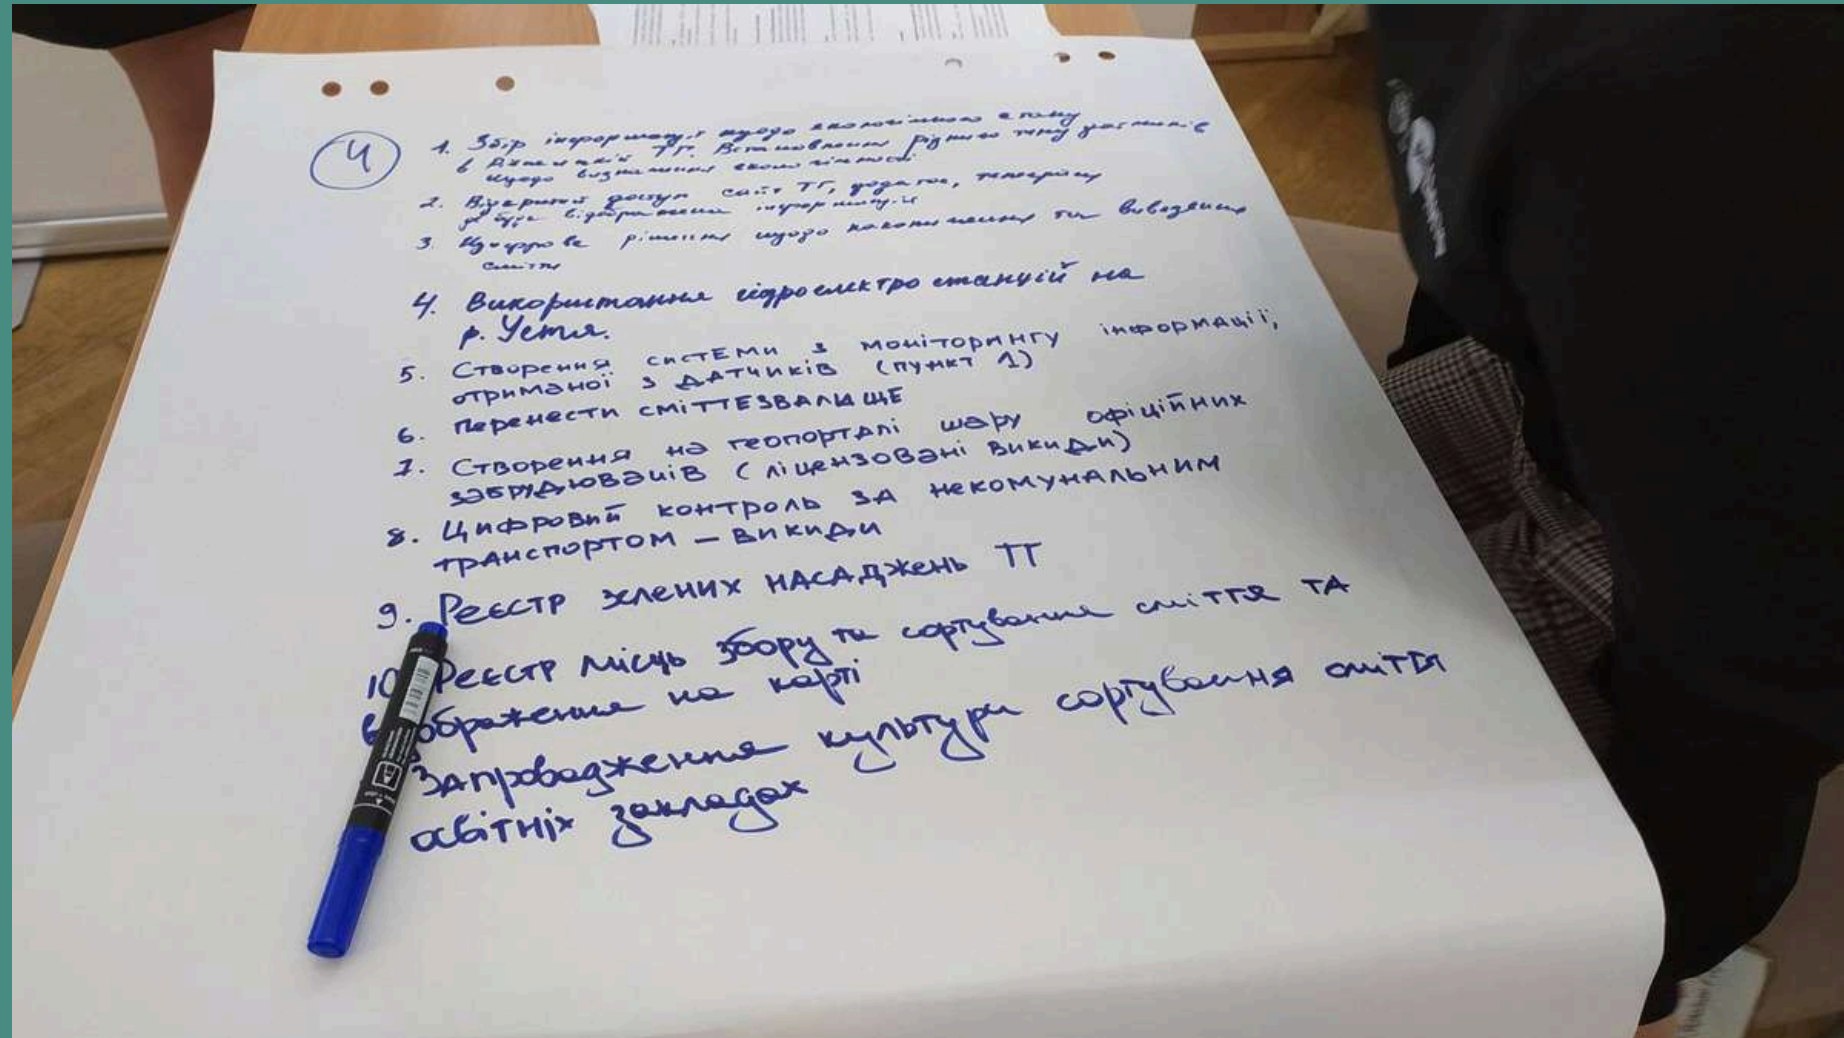 4
1. Збір інформації щодо екологічного стану
в ТГ. Встановлення різного типу датчиків
щодо визначення екологічності
2. Відкритий доступ сайт ТГ, додаток, телеграм
де буде відображена інформація
3. Цифрове рішення щодо накопичення та вивезення
сміття
4. Використання гідроелектростанцій на
р. Устя.
5. Створення системи з моніторингу інформації,
отриманої з датчиків (пункт 1)
6. Перенести сміттєзвалище
7. Створення на геопорталі шару офіційних
забруднювачів (ліцензовані викиди)
8. Цифровий контроль за некомунальним
транспортом – викиди
9. Реєстр зелених насаджень ТГ
10 Реєстр місць збору та сортування сміття та
ображення на карті
Запровадження культури сортування сміття
освітніх закладах